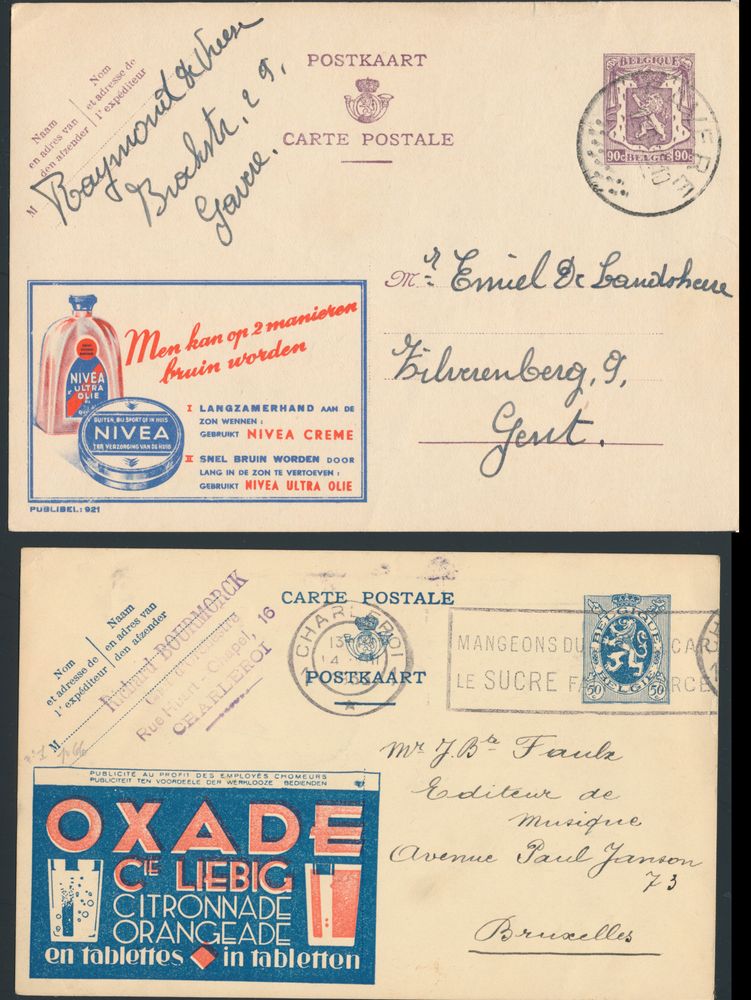 POSTKAART
CARTE POSTALE
Nom
et adresse de
l'expéditeur
Naam
en adres van
den afzender
M
Raymond De
29,
Gavere.
BELGIQUE
90c BELGIE 90c
Mr Emiel De Landsheere
Zilverenberg, 9,
Gent.
Men kan op 2 manieren
bruin worden
NIVEA
ULTRA
OLIE
BUITEN, BIJ SPORT OF IN HUIS
NIVEA
TER VERZORGING VAN DE HUID
I LANGZAMERHAND AAN DE
ZON WENNEN :
GEBRUIKT NIVEA CREME
II SNEL BRUIN WORDEN DOOR
LANG IN DE ZON TE VERTOEVEN :
GEBRUIKT NIVEA ULTRA OLIE
PUBLIBEL: 921
CARTE POSTALE
POSTKAART
Naam
en adres van
den afzender
Nom
et adresse de
l'expéditeur
M
Richard BOURMORCK
Rue Huart Chapel, 16
CHARLEROI
CHARLEROI
13
14
MANGEONS DU CAR
LE SUCRE FORCE
BELGIQUE
BELGIË
50 50
Mr J. Bte Faulx
Editeur de
Musique
Avenue Paul Janson
73
Bruxelles
PUBLICITÉ AU PROFIT DES EMPLOYÉS CHOMEURS
PUBLICITEIT TEN VOORDEELE DER WERKLOOZE BEDIENDEN
OXADE
CIE LIEBIG
CITRONNADE
ORANGEADE
en tablettes in tabletten